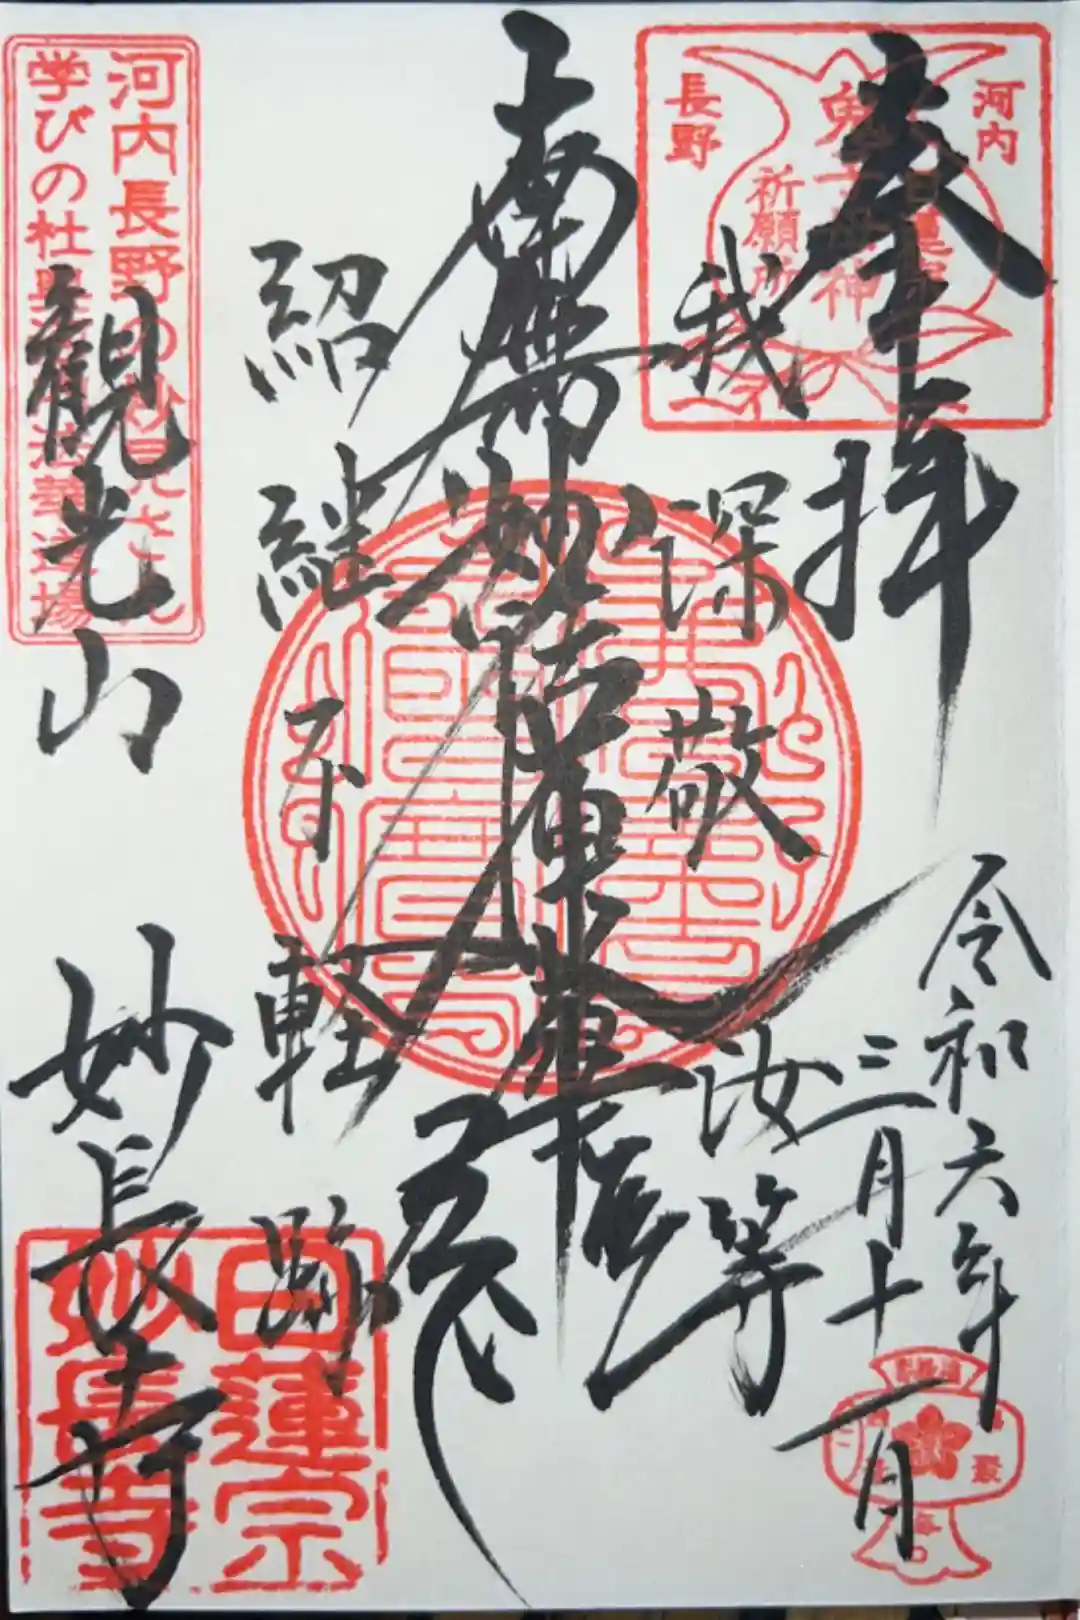 奉拝
令和六年
三月十一日
河内
長野
日蓮宗
鬼子母神
祈願所
我深敬汝等
南無妙法蓮華経
紹継不軽跡
河内長野の妙見さん
学びの杜
法華道場
観光山
妙長寺
日蓮宗
妙長寺